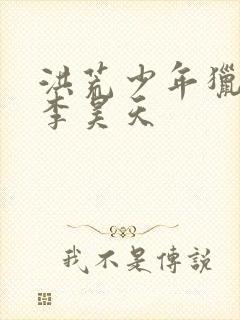 洪荒少年獵
李昊天
我不是傳説